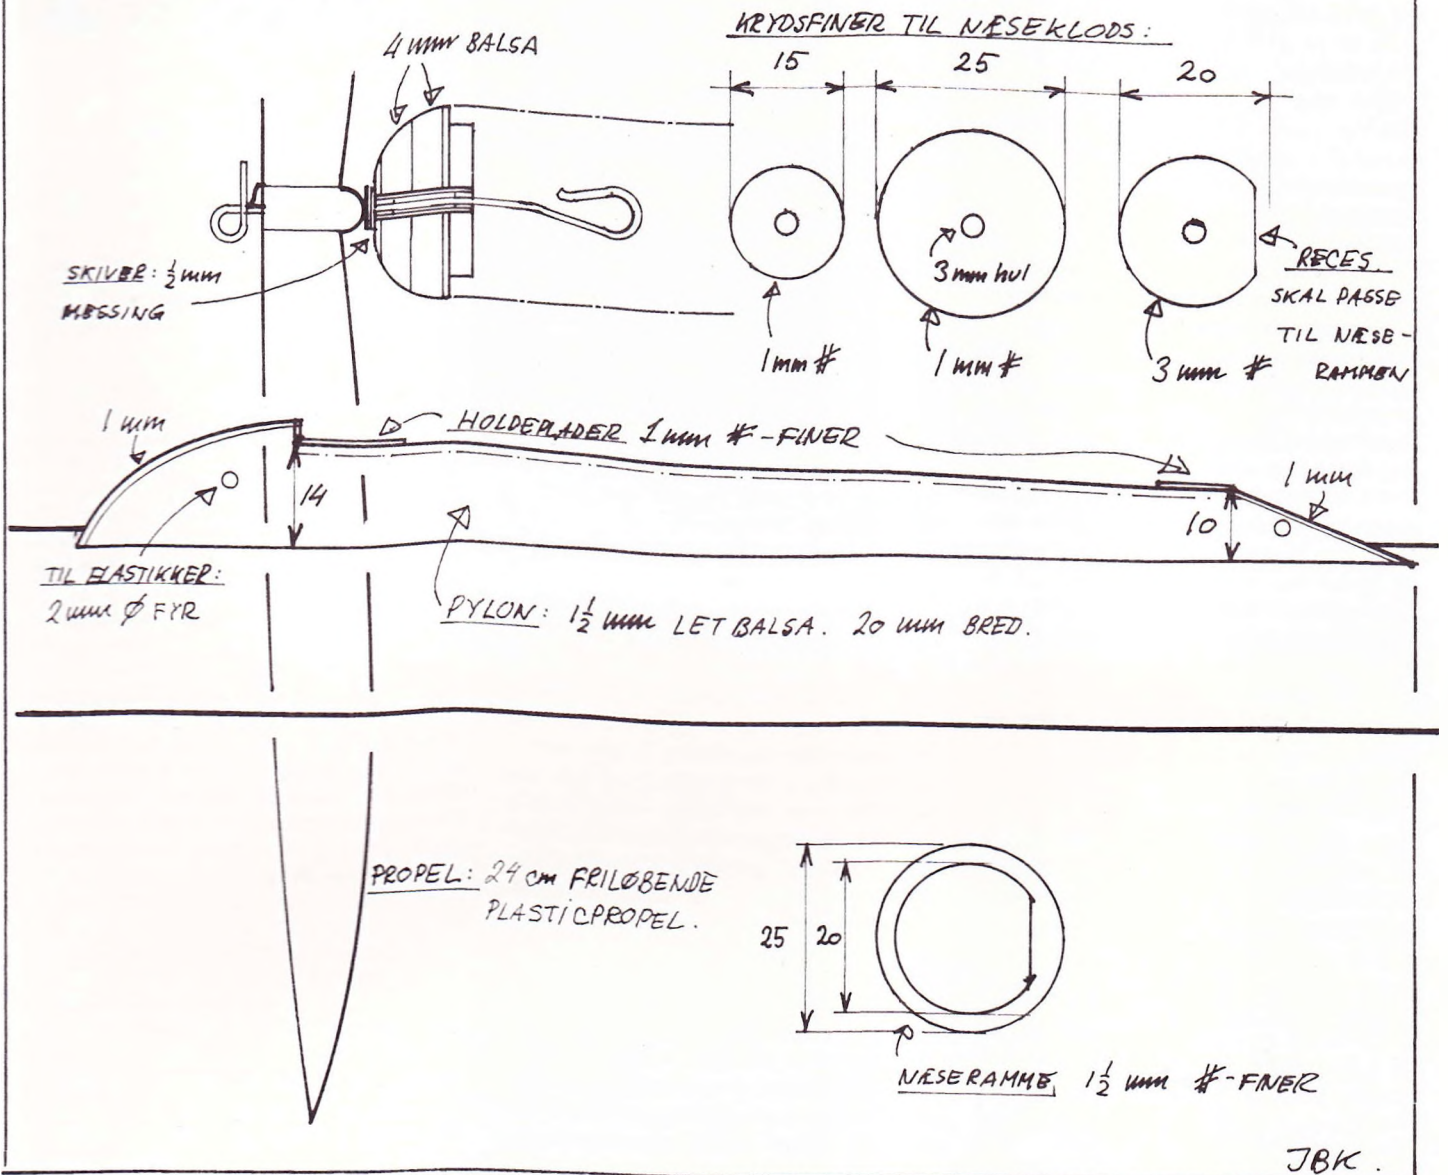 KRYDSFINER TIL NÆSEKLODS:
4 mm BALSA
15
25
20
SKIVER: ½ mm
MESSING
3 mm hul
RECES.
SKAL PASSE
TIL NÆSE-
RAMMEN
1 mm #
1 mm #
3 mm #
1 mm
HOLDEPLADER 1 mm #-FINER
1 mm
14
10
TIL ELASTIKKER:
2 mm Ø FYR
PYLON: 1½ mm LET BALSA. 20 mm BRED.
PROPEL: 24 cm FRILØBENDE
PLASTICPROPEL.
25
20
NÆSERAMME 1½ mm #-FINER
JBK.